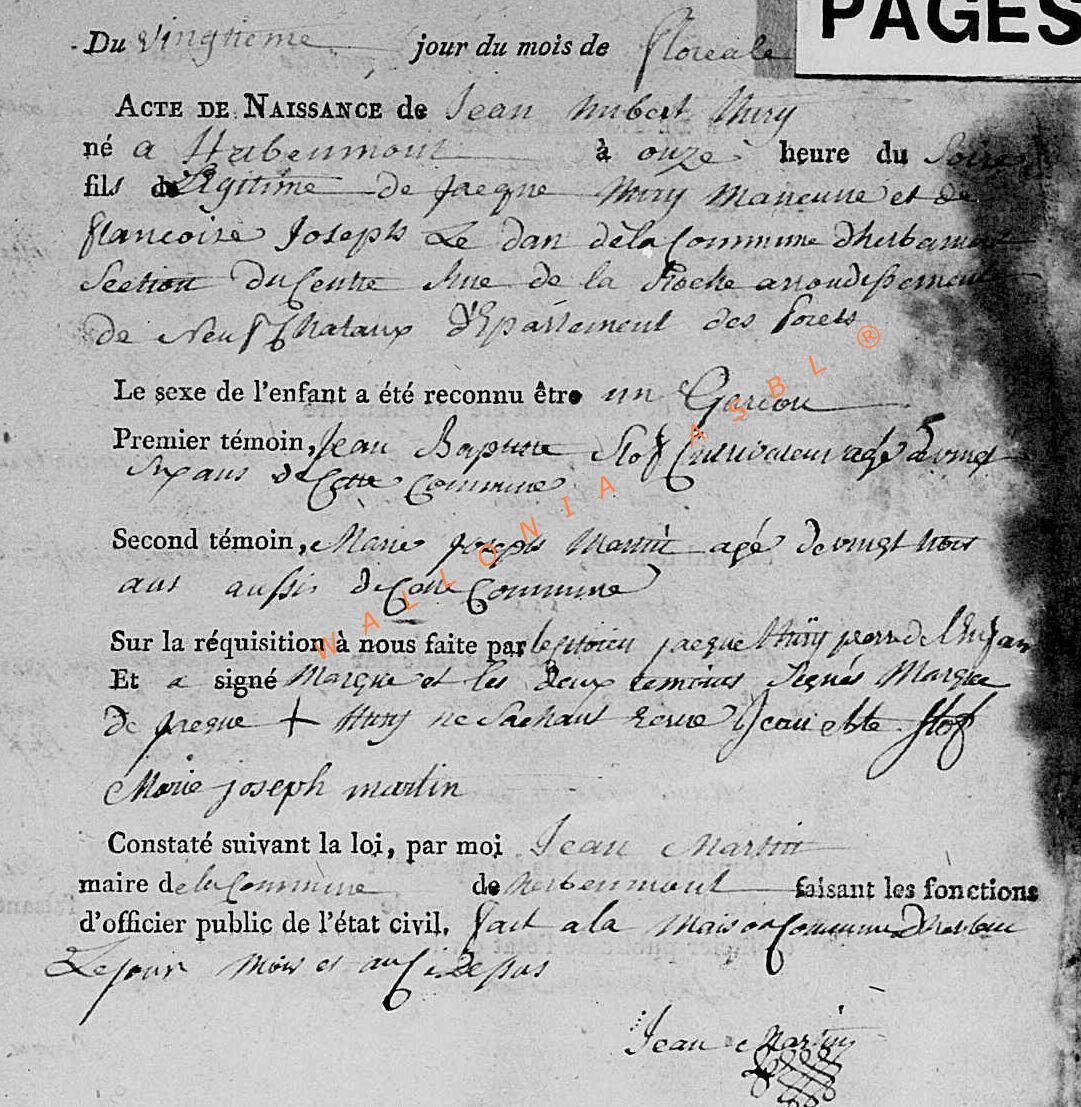 PAGES
Du vingtieme jour du mois de floreale
ACTE DE NAISSANCE de Jean hubert thiry
né a Habenmont à onze heure du Soire
fils de Legitime de jacque thiry Maneuvre et de
francoise Joseph Le dan dela Commune dherbemont
Section du Centre Rue de la Roche arrondissement
de Neufchataux Departement des forets
Le sexe de l'enfant a été reconnu être un Garcon
Premier témoin, Jean Baptiste Slof Cultivateur agé de vingt
Six ans de Cette Commune
Second témoin, Marie joseph Martin agé de vingt trois
ans aussis de Cette Commune
Sur la réquisition à nous faite par le sitoien jacque thiry perre de l'Enfan
Et a signé Marque et les deux temoins Signés Marque
de jacque + thiry ne Sachant Ecrire Jean bte Slof
Marie joseph martin
Constaté suivant la loi, par moi Jean Martin
maire de la Commune de herbeumont faisant les fonctions
d'officier public de l'état civil. fait a la Maison Commune Dherbeu
Le jour Mois et an
Jean Martin
WALLONIA ASBL ®